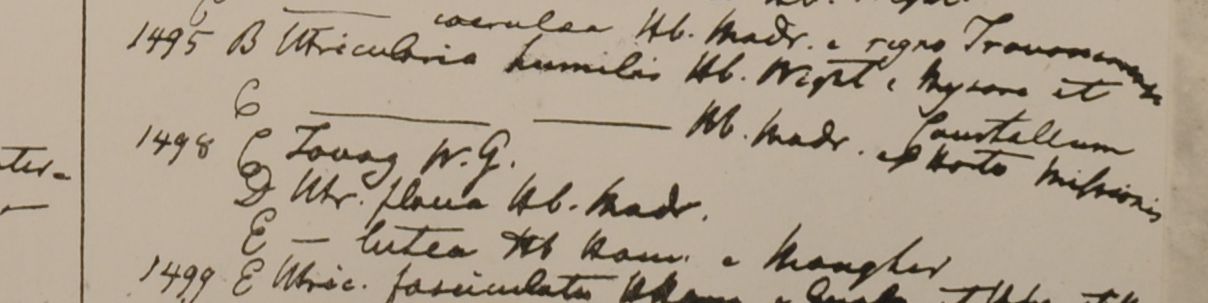 coerulea Hb. Madr. e regno Travancorensi
1495 B Utricularia humilis Hb. Wight e Mysore et Courtallum
C — — Hb. Madr. e Horto Missionis
1498 C Tovag W. G.
D Utr. flava Hb. Madr.
E — lutea Hb Ham. e Mongher
1499 E Utric. fasciculata HHam
ter=